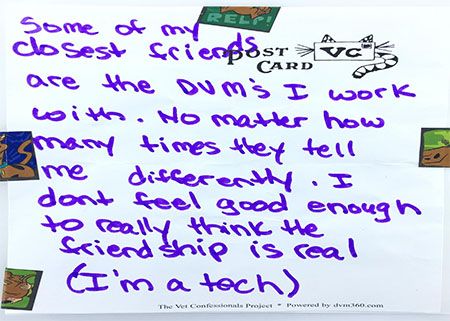 RELP!
Some of my
closest friends
POST CARD VC
are the DVM's I work
with. No matter how
many times they tell
me differently. I
dont feel good enough
to really think the
friendship is real
(I'm a tech)
The Vet Confessionals Project * Powered by dvm360.com